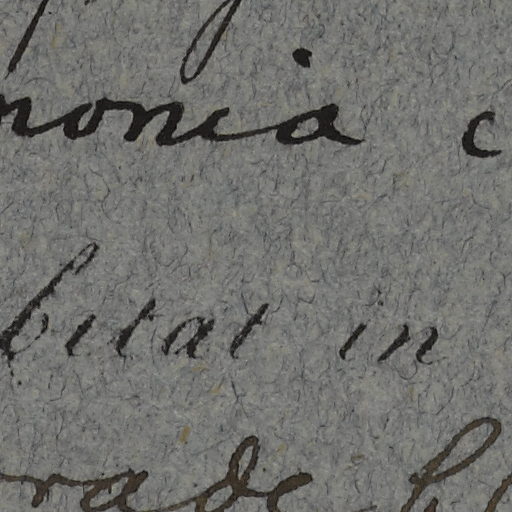 nonia c
bitat in
rade